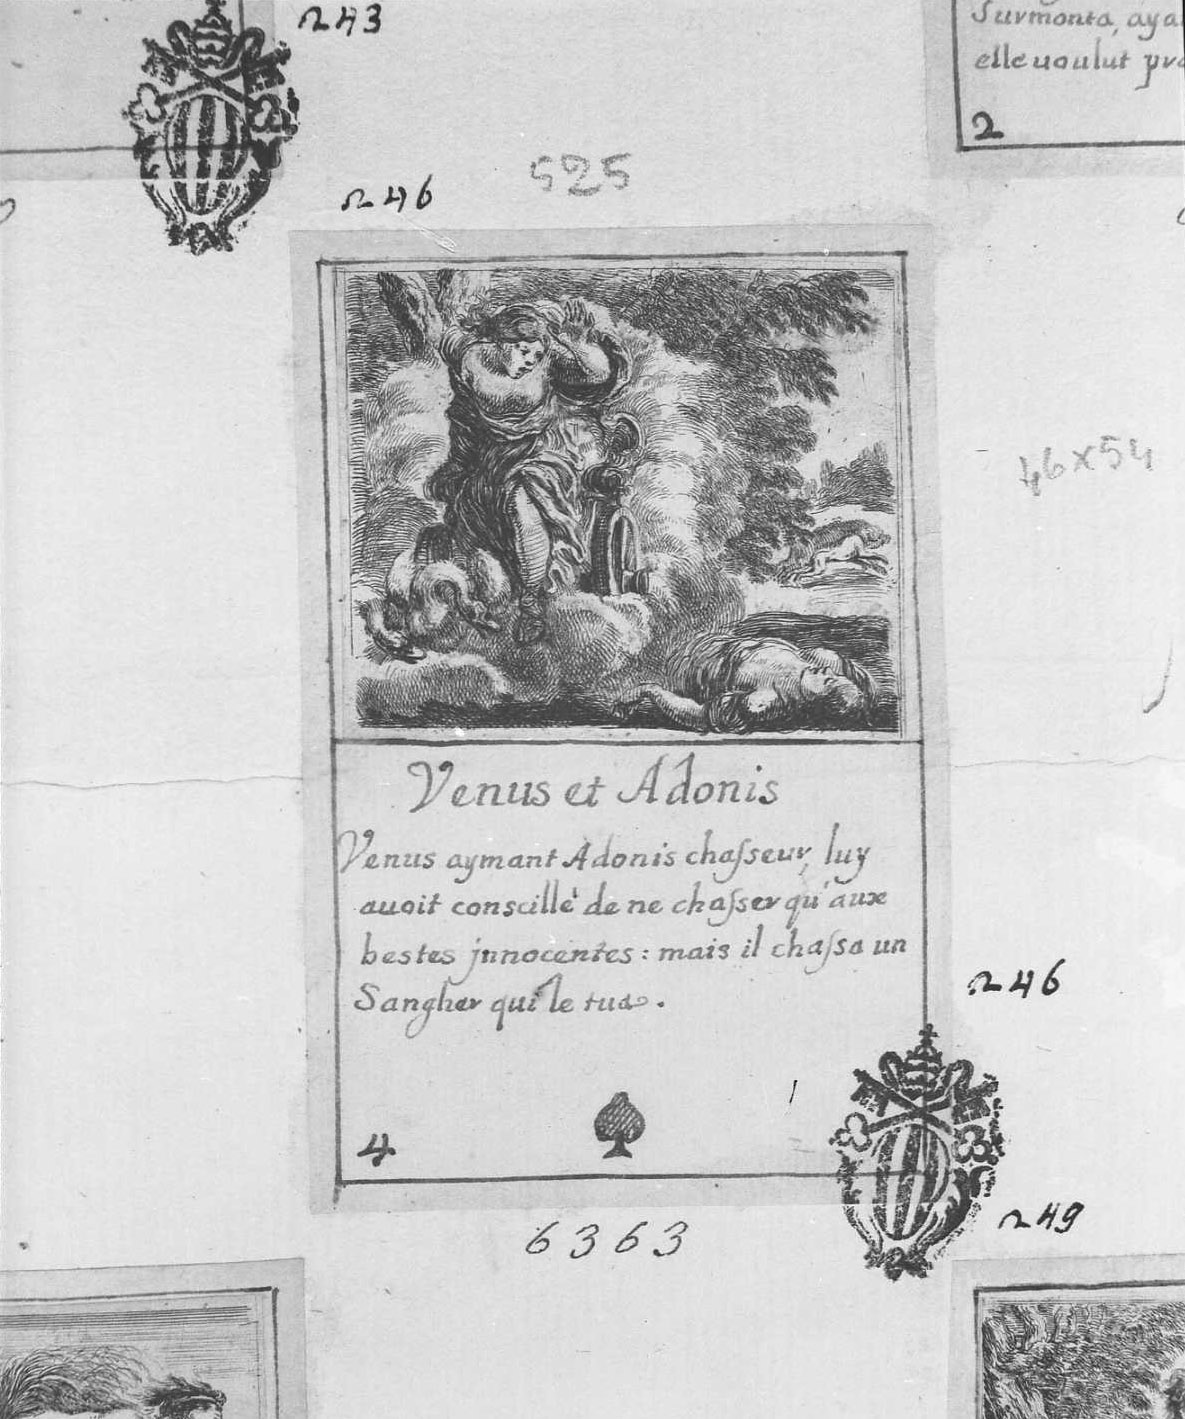 243
Surmonta, aya
elle uoulut pro
2
525
246
46x54
Venus et Adonis
Venus aymant Adonis chaſseur, luy
auoit conseillé de ne chaſser qu'aux
bestes jnnocentes : mais il chaſsa un
Sanglier qui le tua .
246
4
249
6363